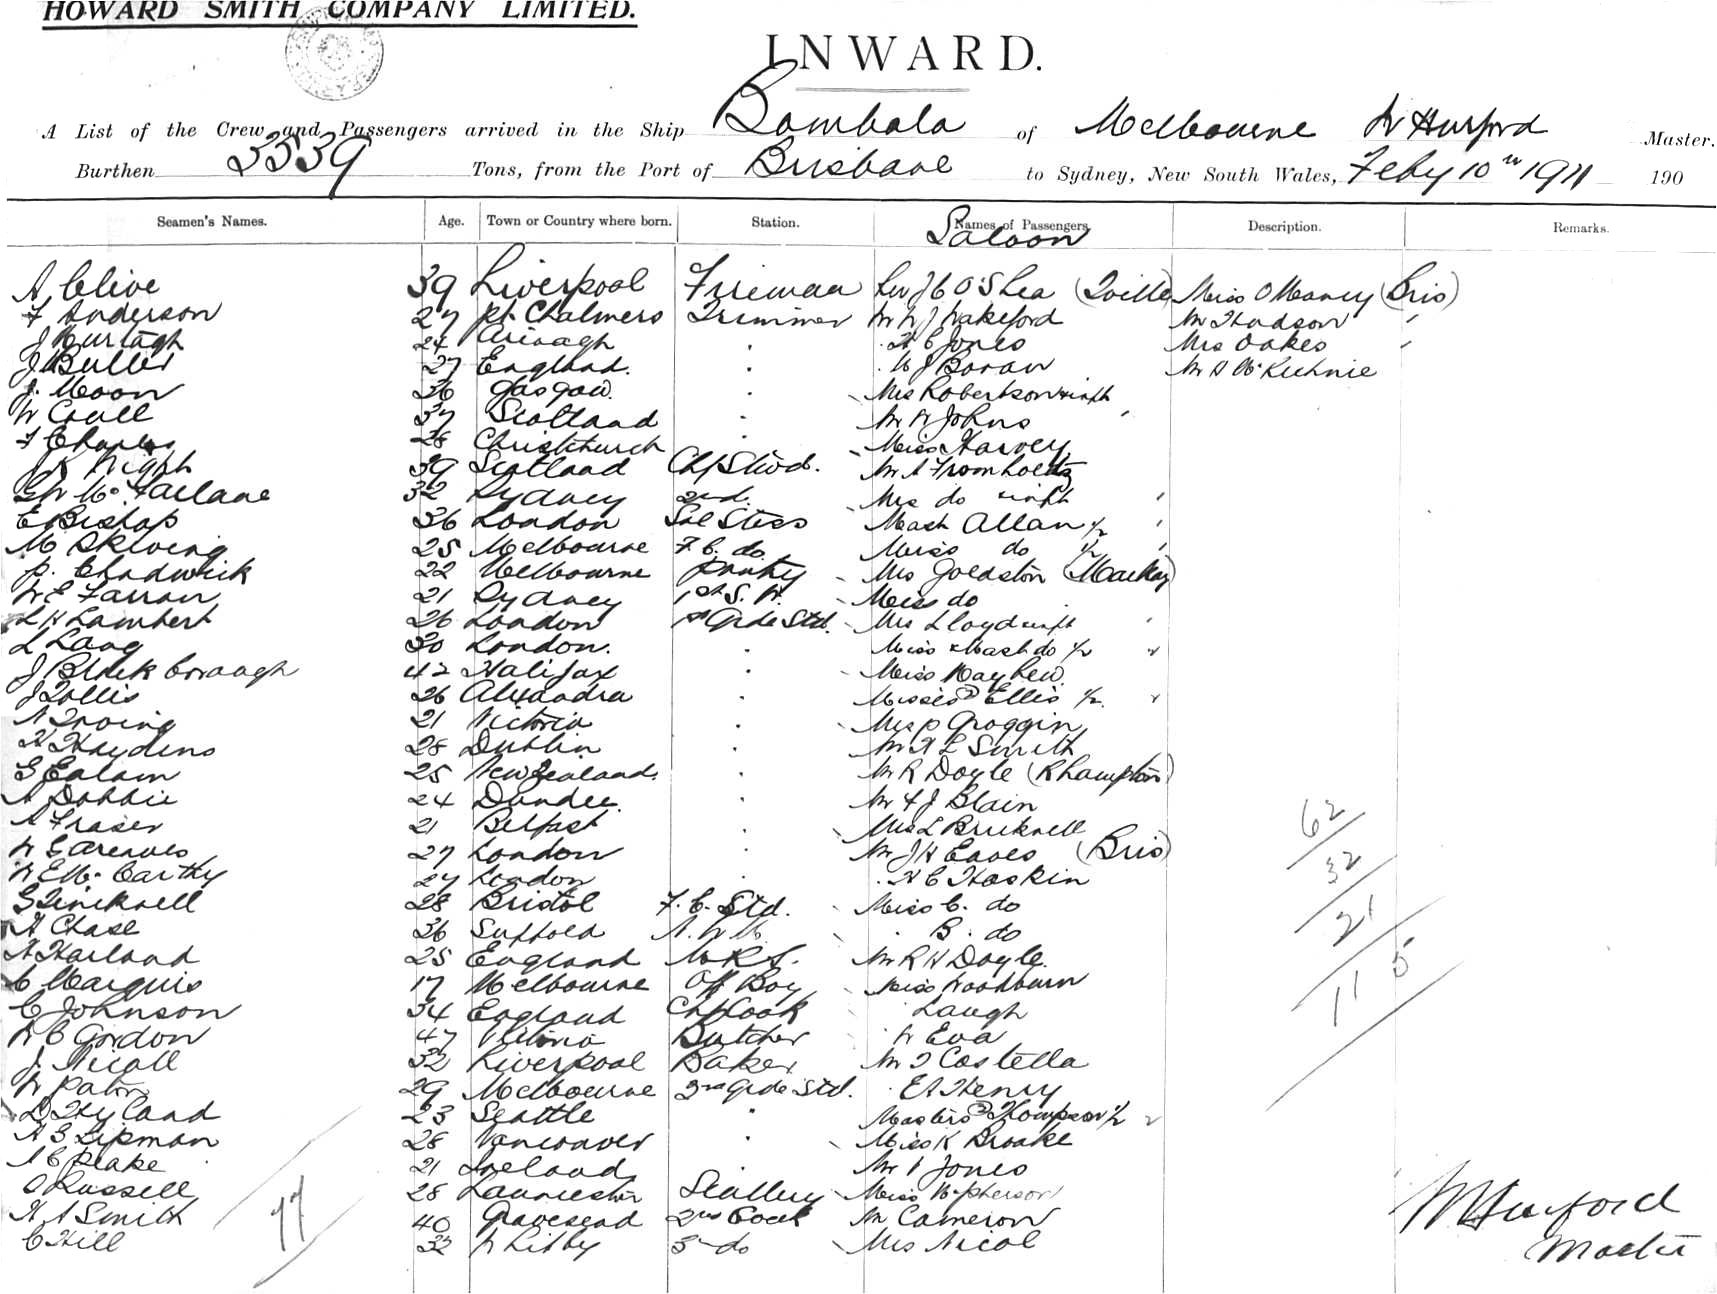 HOWARD SMITH COMPANY LIMITED.
INWARD.
A List of the Crew and Passengers arrived in the Ship Bombala of Melbourne W Hurford Master.
Burthen 3539 Tons, from the Port of Brisbane to Sydney, New South Wales, Feby 10th 1911 190
Seamen's Names. Age. Town or Country where born. Station. Names of Passengers Description. Remarks.
Saloon
A Clive 39 Liverpool Fireman J C O'Shea (Tville) Miss OMeaney (Bris)
F Anderson 27 Pt. Chalmers Trimmer Mr W J Wakeford Mr Hudson "
J Murtagh 24 " H C Jones Mrs Oakes "
J Butler 27 England. " W J Boran Mr A McKechnie
J. Moon 36 Gasgow. " Mrs Robertson & inft
W Coull 37 Scotland " Mr W Johns "
F Charles 28 Christchurch " Miss Harvey
J R Wight 39 Scotland Chf Stwd. Mr A Fromholtz
G W McFarlane 32 Sydney 2nd. Mrs do & inft "
E Bishop 36 London Sal Stess Mast Allan 1/2 "
M Skiving 25 Melbourne F. C. do. Miss do 1/2 "
P. Chadwick 22 Melbourne Pantry Mrs Goldston (Mackay)
W E Farran 21 Sydney 1st S. W. Miss do
L H Lambert 26 London 1st Grde Std. Mrs Lloyd & inft "
L Lang 30 London. " Miss & Mast do 1/2 "
J Blackborough 42 Halifax " Miss Mayhew.
J Tollis 26 Alexandra " Misses 2 Ellis 1/2 "
A Irving 21 Victoria " Mrs P Groggin
H Haydens 28 Dublin " Mr A L Smith
G Ealam 25 New Zealand. " Mr R Doyle (Rhampton)
A Dobbie 24 Dundee. " Mr F J Blain
A Fraser 21 Belfast " Mrs L Brucknell
W Greaves 27 London " Mr J H Eaves (Bris)
W E McCarthy 27 London " H C Hoskin
G Tincknell 28 Bristol F. C. Std. Miss C. do
A Chase 36 Suffold " B. do
A Harland 25 England Mr R H Doyle.
C Marquis 17 Melbourne Off Boy Miss Woodburn
C Johnson 34 England Chf Cook " Laugh
W C Gordon 47 Victoria Butcher " W Eva
J. Nicoll 32 Liverpool Baker Mr T Costella
W Paton 29 Melbourne 3rd Grde Std. " E A Henry
D Hyland 23 Seattle " Masters 2 Thompson 1/2 "
A G Lipman 28 Vancouver " Miss K Brooke
A C Peake 21 Ireland " Mr A Jones
O Russell 28 Launceston Scullery Miss McPherson
H A Smith 40 Gravesend 2nd Cook Mr Cameron
C Hill 32 Whitby 3rd do Mrs Nicol
62
32
21
11 5
77
W Hurford
Master